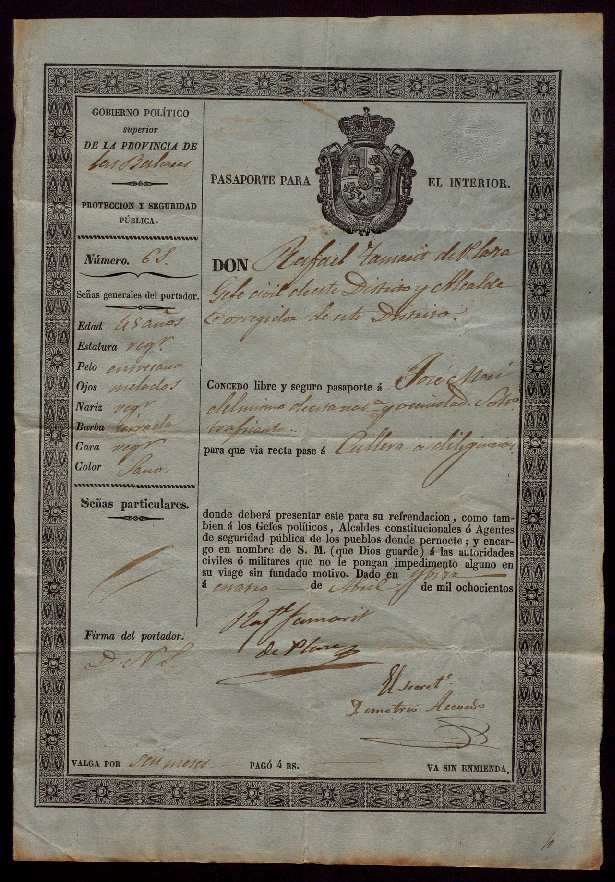 GOBIERNO POLÍTICO
superior
DE LA PROVINCIA DE
las Baleares
PROTECCION Y SEGURIDAD
PÚBLICA.
Número. 63.
Señas generales del portador.
Edad 45 años
Estatura regr.
Pelo entrecano
Ojos melados
Nariz reg.
Barba
Cara regr
Color Sano.
Señas particulares.
Firma del portador.
VALGA POR seis meses
PASAPORTE PARA EL INTERIOR.
DON Rafael Tamarit de Plaza
Gefe civil de este Distrito y Alcalde
Corregidor de este Distrito.
CONCEDO libre y seguro pasaporte á José Mari
del mismo
traficante.
para que via recta pase á Cullera a diligencias
donde deberá presentar este para su refrendacion, como tam-
bien á los Gefes políticos, Alcaldes constitucionales ó Agentes
de seguridad pública de los pueblos donde pernocte; y encar-
go en nombre de S. M. (que Dios guarde) á las autoridades
civiles ó militares que no le pongan impedimento alguno en
su viage sin fundado motivo. Dado en Ybiza
á cuatro de Abril de mil ochocientos
Rafl. Tamarit
de Plaza
El Secreto.
Demetrio
PAGÓ 4 RS.
VA SIN ENMIENDA.